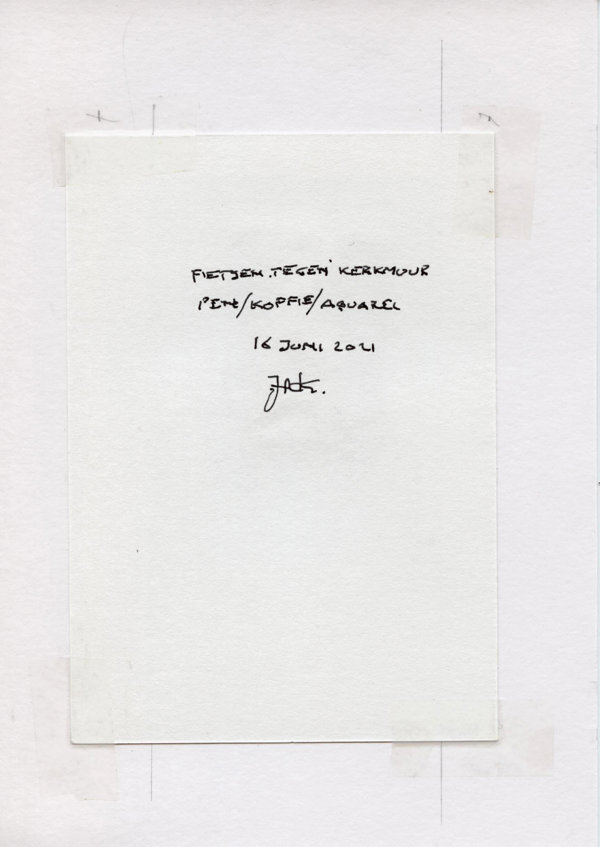 FIETSEN TEGEN KERKMUUR
PEN/KOFFIE/AQUAREL
16 JUNI 2021
JACK.